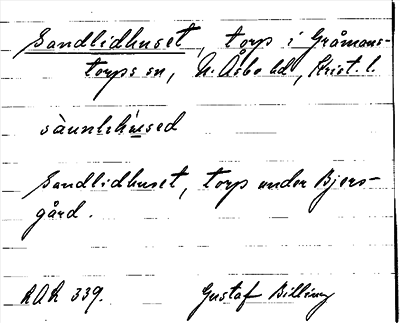 Sandlidhuset, torp i Gråmans-
torps sn, N. Åsbo hd, Krist. l.
sàunlıhúsed
Sandlidhuset, torp under Bjers-
gård.
RAR 339. Gustaf Billing